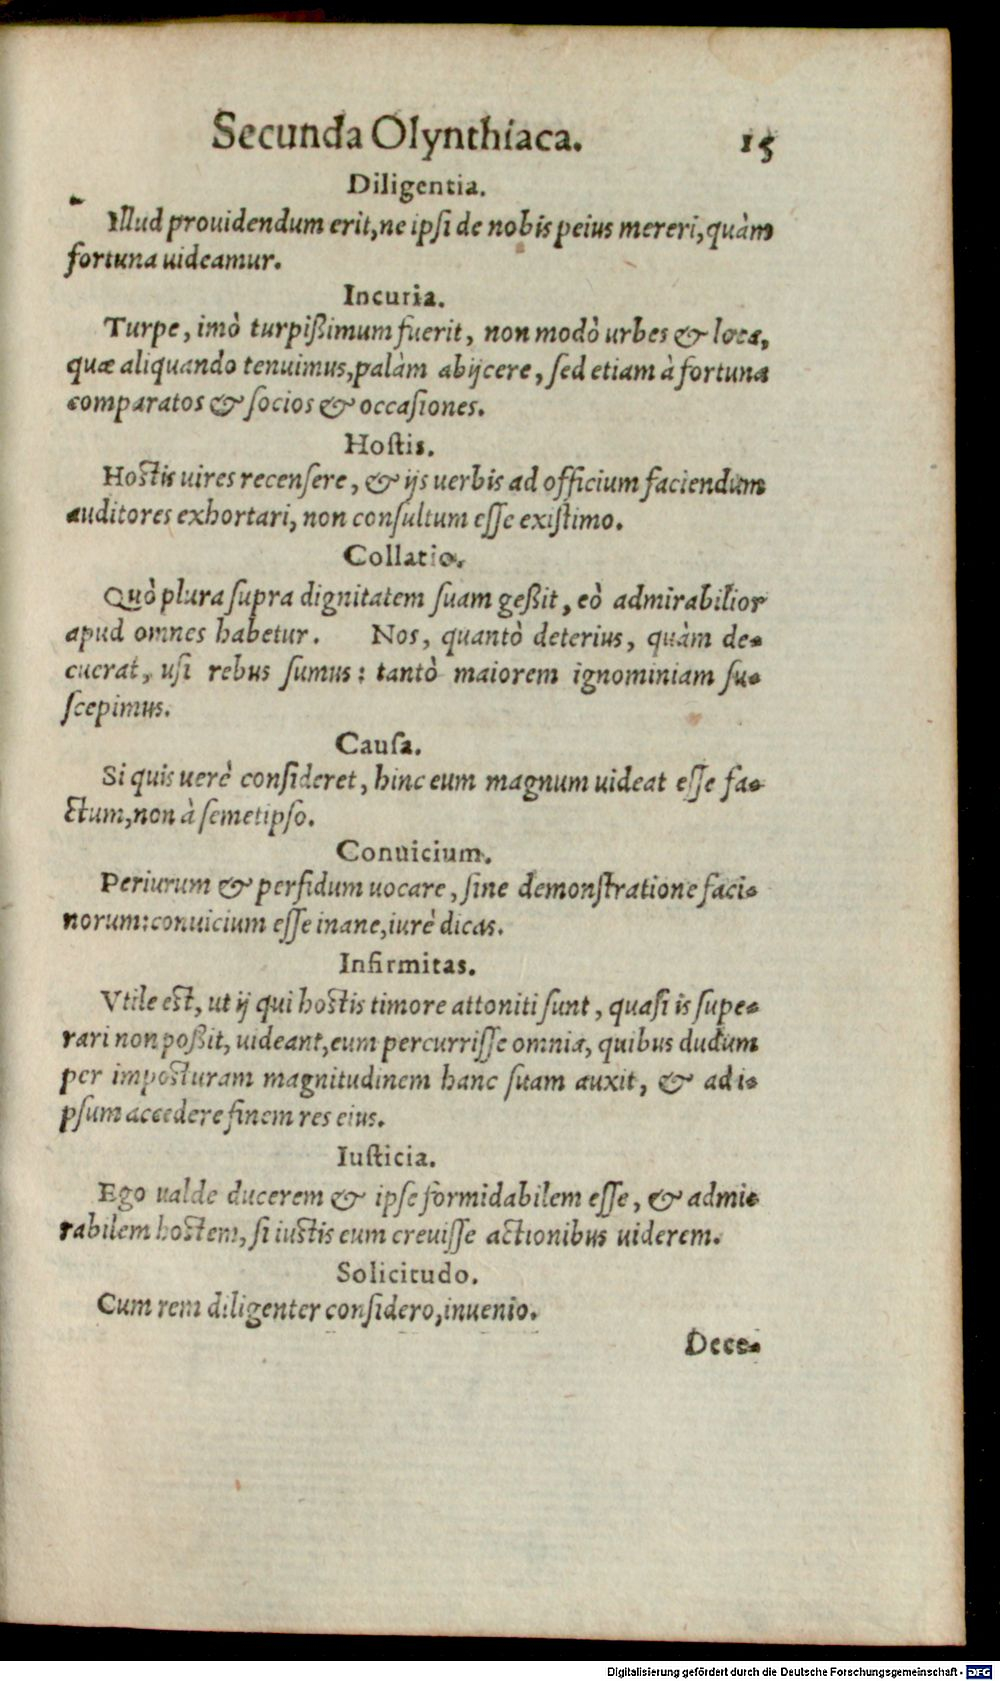 Secunda Olynthiaca. 15
Diligentia.
Illud prouidendum erit, ne ipsi de nobis peius mereri, quàm
fortuna uideamur.
Incuria.
Turpe, imò turpißimum fuerit, non modò urbes & loca,
quæ aliquando tenuimus, palàm abijcere, sed etiam à fortuna
comparatos & socios & occasiones.
Hostis.
Hostis uires recensere, & ijs uerbis ad officium faciendum
auditores exhortari, non consultum esse existimo.
Collatio.
Quò plura supra dignitatem suam geßit, eò admirabilior
apud omnes habetur. Nos, quantò deterius, quàm de-
cuerat, usi rebus sumus: tantò maiorem ignominiam su-
scepimus.
Causa.
Si quis uerè consideret, hinc eum magnum uideat esse fa-
ctum, non à semetipso.
Conuicium.
Periurum & perfidum uocare, sine demonstratione faci-
norum: conuicium esse inane, iurè dicas.
Infirmitas.
Vtile est, ut ij qui hostis timore attoniti sunt, quasi is supe-
rari non poßit, uideant, eum percurrisse omnia, quibus dudum
per imposturam magnitudinem hanc suam auxit, & ad i-
psum accedere finem res eius.
Iusticia.
Ego ualde ducerem & ipse formidabilem esse, & admi-
rabilem hostem, si iustis eum creuisse actionibus uiderem.
Solicitudo.
Cum rem diligenter considero, inuenio.
Dece-
Digitalisierung gefördert durch die Deutsche Forschungsgemeinschaft - DFG